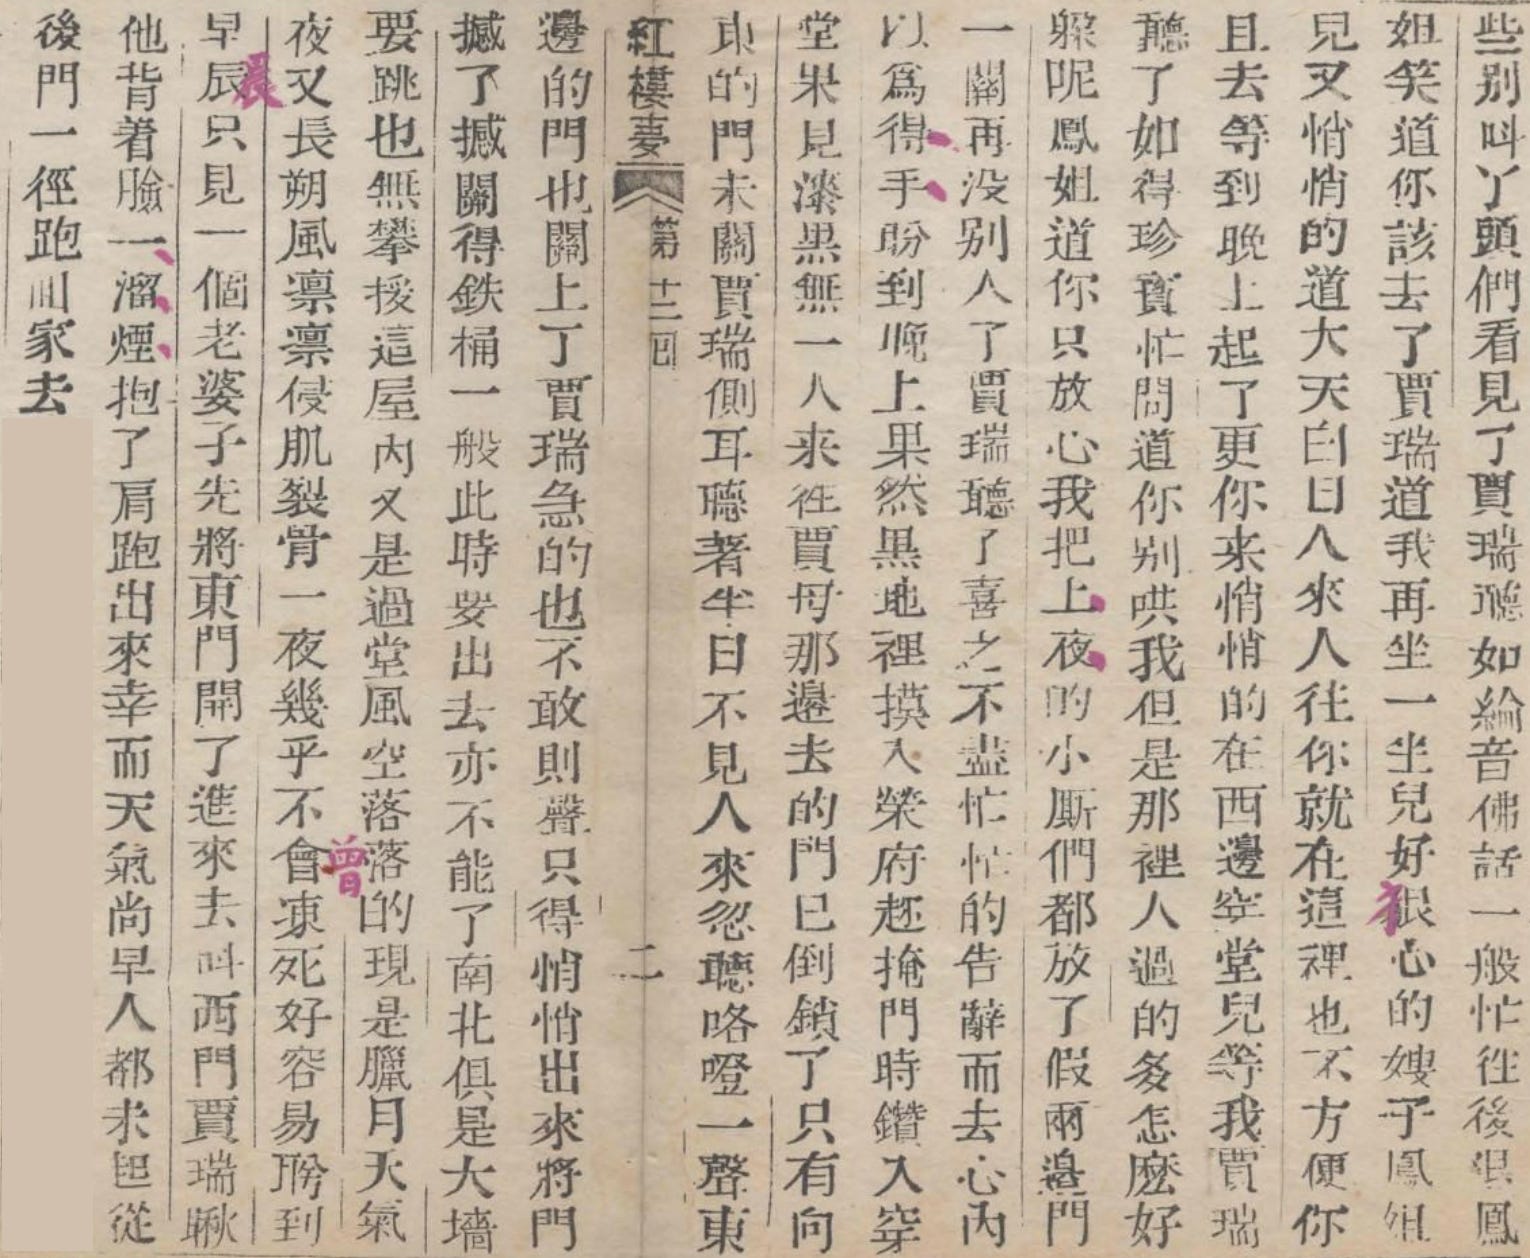 些别呌丫頭們看見了賈瑞聽如綸音佛話一般忙徃後退鳳
姐笑道你該去了賈瑞道我再坐一坐兒好狠心的嫂子鳳姐
兒又悄悄的道大天白日人來人往你就在這裡也不方便你
且去等到晚上起了更你来悄悄的在西邊空堂兒等我賈瑞
聽了如得珍寳忙問道你别哄我但是那裡人過的多怎麽好
躲呢鳳姐道你只放心我把上夜的小厮們都放了假兩邊門
一關再没别人了賈瑞聽了喜之不盡忙忙的告辭而去心内
以爲得手盼到晚上果然黒地裡摸入榮府趂掩門時鑽入穿
堂果見漆黒無一人来徃賈母那邊去的門已倒鎖了只有向
東的門未關賈瑞側耳聽著半日不見人來忽聽咯噔一聲東
紅樓夢
第十二囘
二
邊的門也關上了賈瑞急的也不敢則聲只得悄悄出來將門
撼了撼關得鉄桶一般此時要出去亦不能了南北俱是大墻
要跳也無攀援這屋内又是過堂風空落落的現是臘月天氣
夜又長朔風凛凛侵肌裂骨一夜幾乎不會凍死好容易盼到
曾
早辰只見一個老婆子先將東門開了進來去呌西門賈瑞瞅
晨
他背着臉一溜煙抱了肩跑出來幸而天氣尚早人都未起從
後門一徑跑囘家去